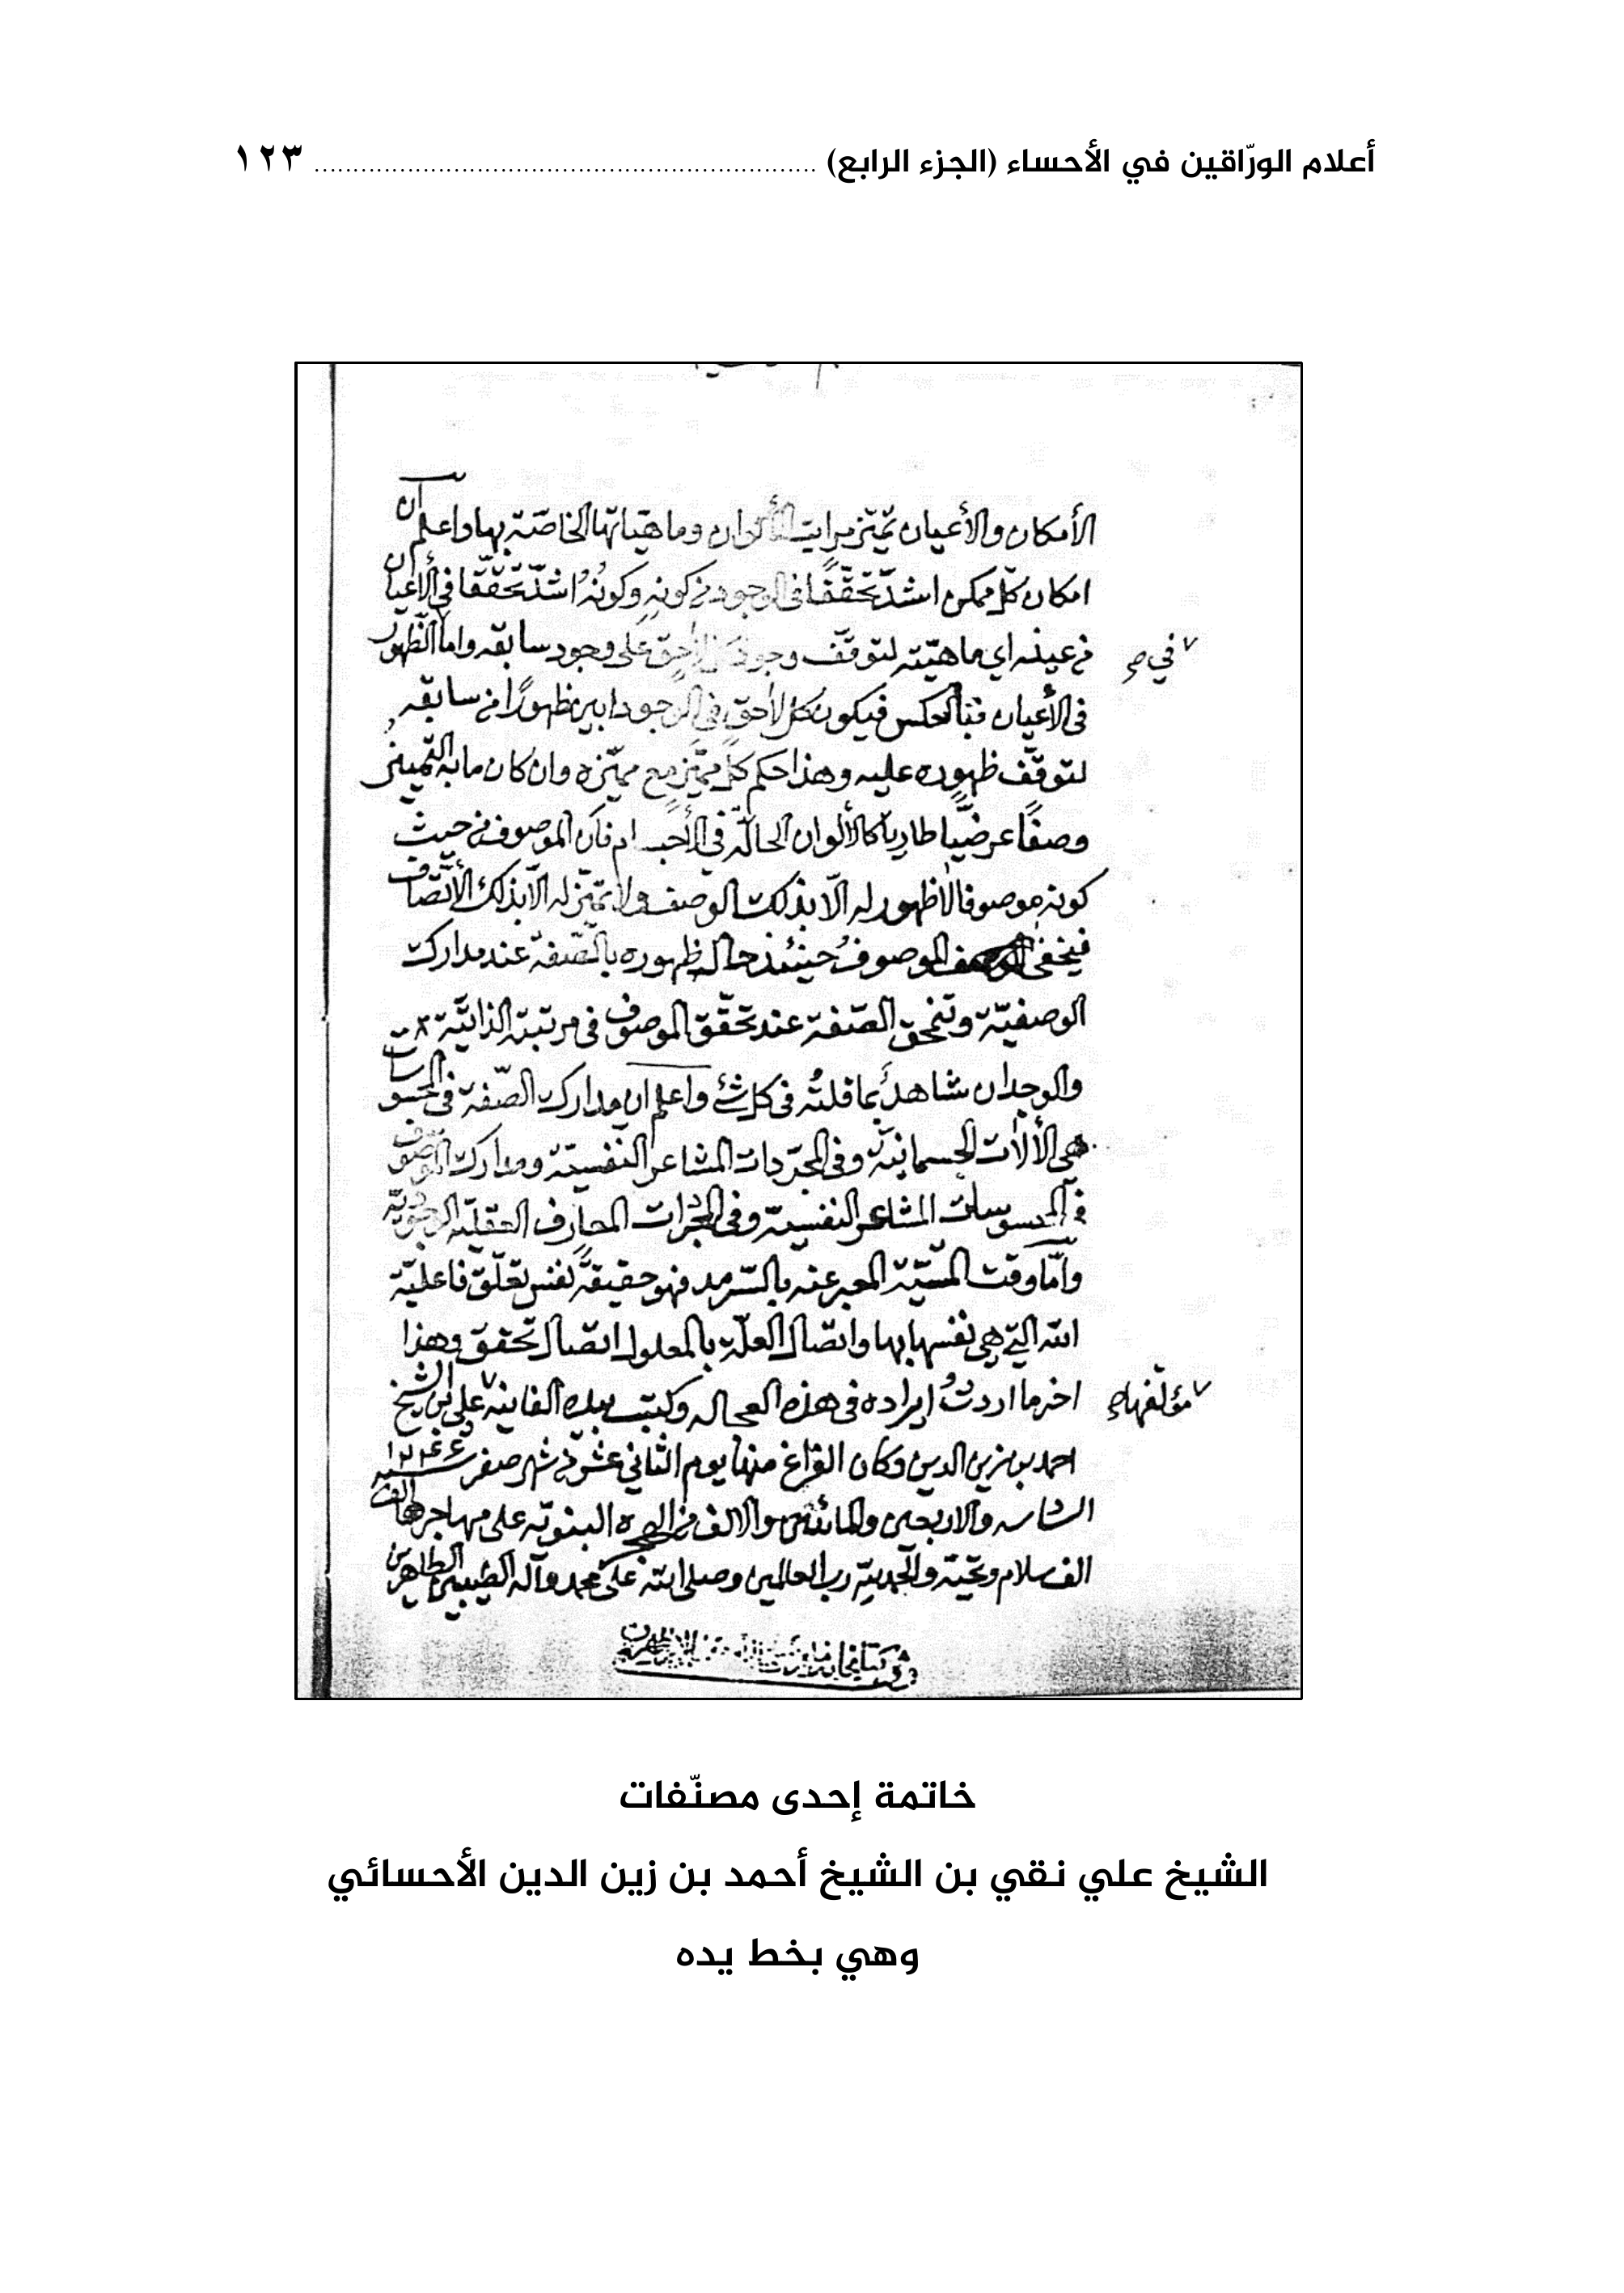 أعلام الورّاقين في الأحساء (الجزء الرابع) ................................................................ ١٢٣
الأمكان والأعيان تميّز مراتب الأكوان وماهيّاتها الخاصّة بها واعلم ان
امكان كلّ ممكن اشدّ تحقّقًا في الوجود من كونه وكونُهُ اشدّ تحقّقا في الأعيان
من عينه اي ماهيّته لتوقّف وجود لاحق على وجود سابقه واما الظهور
في ص
في الأعيان فبالعكس فيكون كل لاحق في الوجود ابين ظهورًا من سابقه
لتوقّف ظهوره عليه وهذا حكم كلّ مميّز مع مميّزه وان كان ما به التميز
وصفًا عرضيًّا طاريا كالألوان الحالّة في الأجسام فأن الموصوف من حيث
كونه موصوفا لا ظهور له الّا بذلك الوصف ولا تميّز له الّا بذلك الأتّصاف
فيخفى الموصوفُ حينئذ حال ظهوره بالصّفة عند مدارك
الوصفيّة وتنمحق الصّفة عند تحقّق الموصوف في مرتبة الذاتيّة
والوجدان شاهدٌ بما قلتُه في كل شئ واعلم ان مدارك الصّفة في المحسوسات
هي الألات الجسمانيّة وفي المجرّدات المشاعر النفسيّة ومدارك الموصوف
في المحسوسات المشاعر النفسيّة وفي المجرّدات المعارف العقليّة
وامّا وقت المشيّة المعبر عنه بالسّرمد فهو حقيقةً نفس تعلّق فاعليّة
الله التي هي نفسها بها واتصال العلّة بالمعلول اتصال تحقق وهذا
اخر ما اردتُ ايراده في هذه العجاله وكتب بيده الفانيه علي بن الشيخ
مؤلّفها ص
احمد بن زين الدين وكان الفراغ منها يوم الثاني عشر من شهر صفر سنة ١٢٤٦
السادسه والاربعين والمائتين والالف من الهجره النبويّه على مهاجرها الف
الف سلام وتحيّة والحمد لله رب العالمين وصلى الله على محمد وآله الطيبين الطاهرين
خاتمة إحدى مصنّفات
الشيخ علي نقي بن الشيخ أحمد بن زين الدين الأحسائي
وهي بخط يده